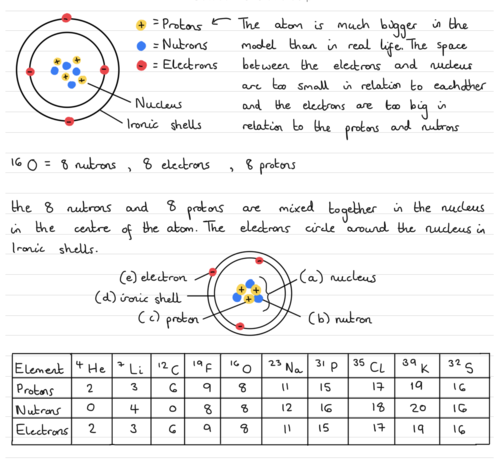 + = Protons ← The atom is much bigger in the
= Nutrons model than in real life. The space
- = Electrons between the electrons and nucleus
are too small in relation to eachother
Nucleus and the electrons are too big in
Ironic shells relation to the protons and nutrons
¹⁶O = 8 nutrons , 8 electrons , 8 protons
the 8 nutrons and 8 protons are mixed together in the nucleus
in the centre of the atom. The electrons circle around the nucleus in
Ironic shells.
(e) electron (a) nucleus
(d) ironic shell
(c) proton (b) nutron
Element ⁴He ⁷Li ¹²C ¹⁹F ¹⁶O ²³Na ³¹P ³⁵Cl ³⁹K ³²S
Protons 2 3 6 9 8 11 15 17 19 16
Nutrons 0 4 0 8 8 12 16 18 20 16
Electrons 2 3 6 9 8 11 15 17 19 16